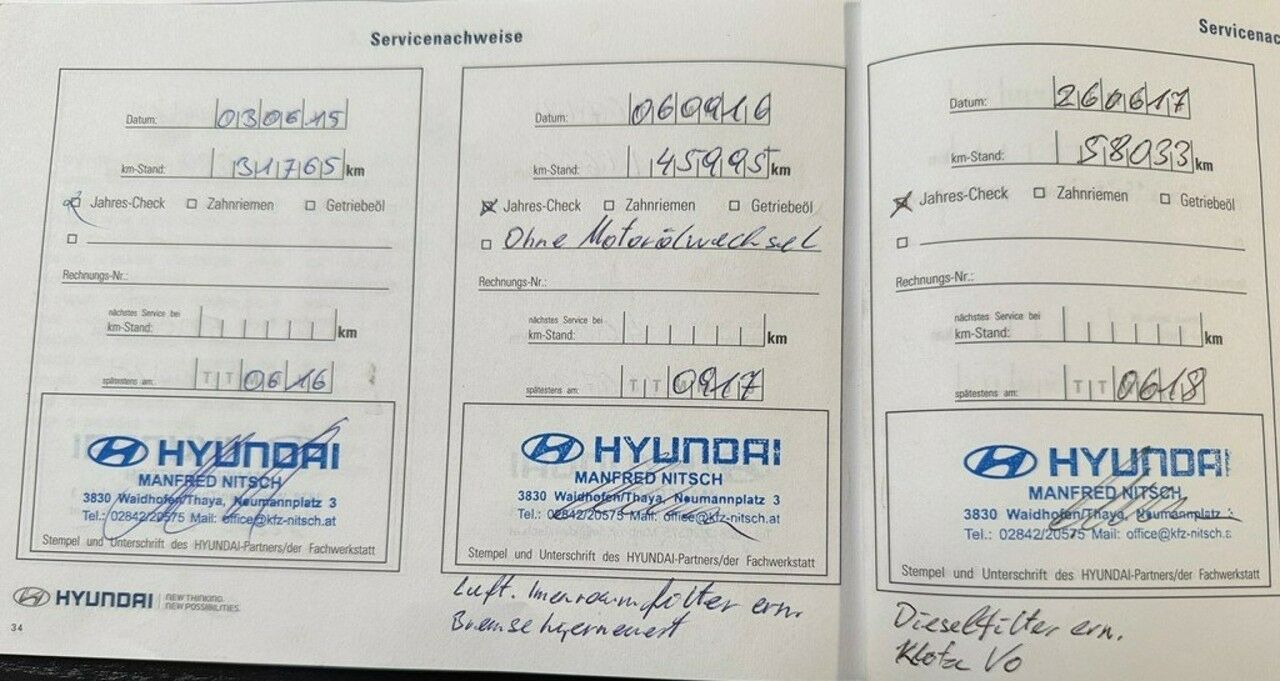 Servicenachweise
Datum: 030615
km-Stand: 31765 km
Jahres-Check Zahnriemen Getriebeöl
Rechnungs-Nr.:
nächstes Service bei
km-Stand: km
spätestens am: TT 0616
HYUNDAI
MANFRED NITSCH
3830 Waidhofen/Thaya, Neumannplatz 3
Tel.: 02842/20575 Mail: office@kfz-nitsch.at
Stempel und Unterschrift des HYUNDAI-Partners/der Fachwerkstatt
HYUNDAI NEW THINKING.
NEW POSSIBILITIES.
34
Datum: 060916
km-Stand: 45995 km
Jahres-Check Zahnriemen Getriebeöl
Ohne Motorölwechsel
Rechnungs-Nr.:
nächstes Service bei
km-Stand: km
spätestens am: TT 0917
HYUNDAI
MANFRED NITSCH
3830 Waidhofen/Thaya, Neumannplatz 3
Tel.: 02842/20575 Mail: office@kfz-nitsch.at
Stempel und Unterschrift des HYUNDAI-Partners/der Fachwerkstatt
Luft. Innenraumfilter ern.
Bremse erneuert
Servicenac
Datum: 260617
km-Stand: 58033 km
Jahres-Check Zahnriemen Getriebeöl
Rechnungs-Nr.:
nächstes Service bei
km-Stand: km
spätestens am: TT 0618
HYUNDAI
MANFRED NITSCH
3830 Waidhofen/Thaya, Neumannplatz
Tel.: 02842/20575 Mail: office@kfz-nitsch.a
Stempel und Unterschrift des HYUNDAI-Partners/der Fachwerkstatt
Dieselfilter ern.